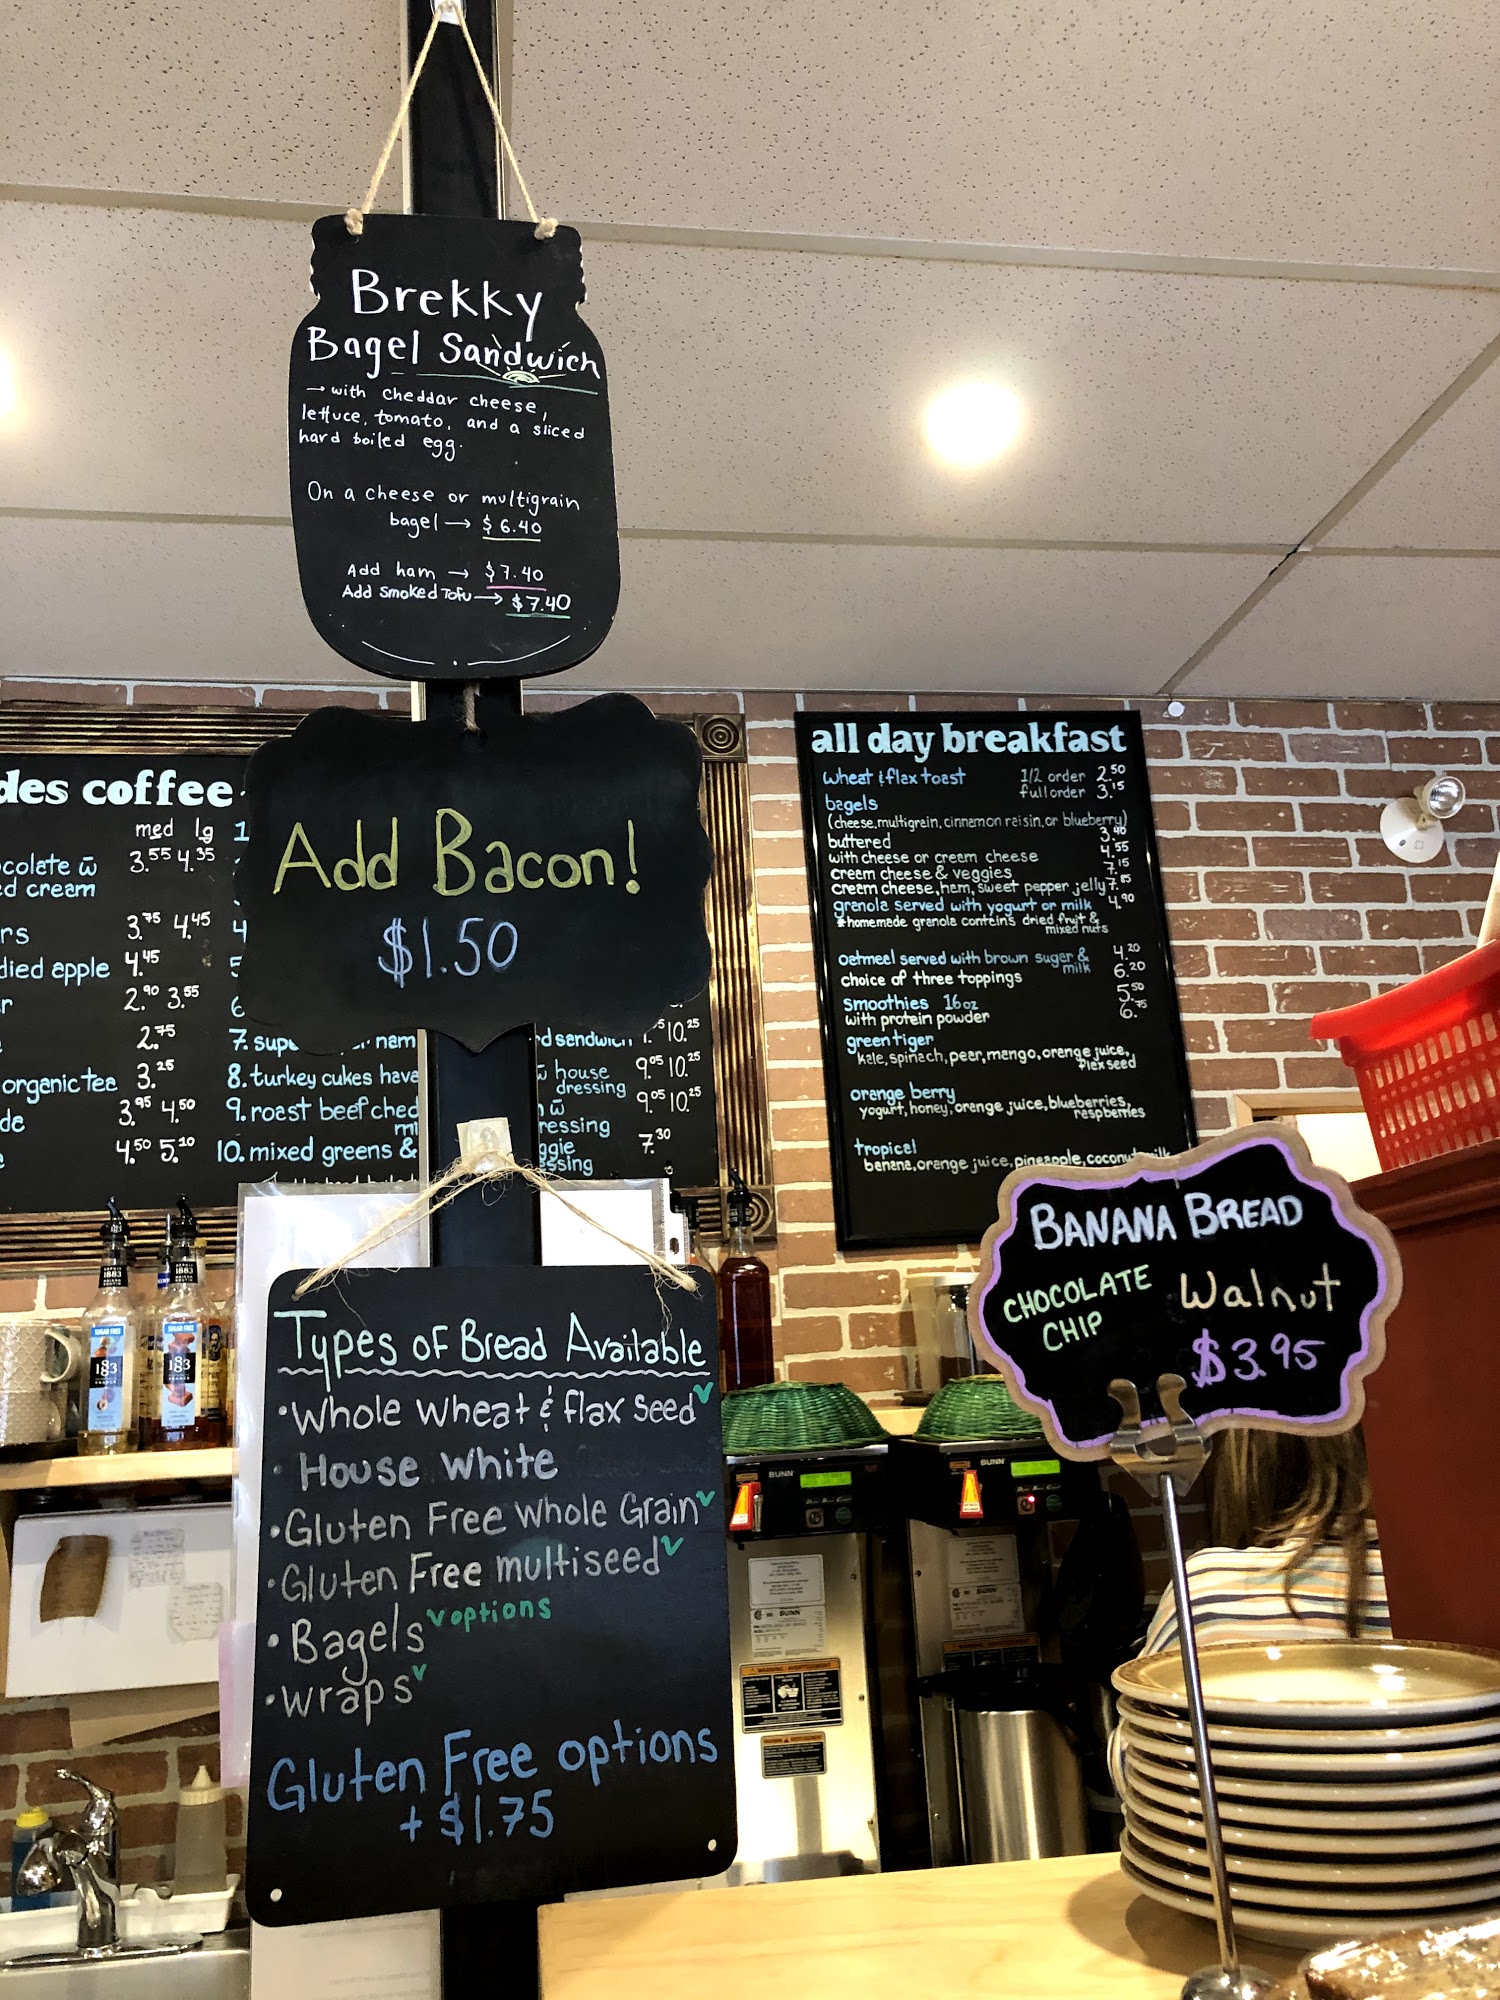 Brekky
Bagel Sandwich
→ with cheddar cheese,
lettuce, tomato, and a sliced
hard boiled egg.
On a cheese or multigrain
bagel → $6.40
Add ham → $7.40
Add smoked Tofu → $7.40
Add Bacon!
$1.50
des coffee
med lg
colate w̄ 3.55 4.35
ed cream
rs 3.75 4.45
died apple 4.45
r 2.90 3.55
2.75
organic tea 3.25
de 3.95 4.50
4.50 5.20
7. supe nam
8. turkey cukes hava
9. roast beef ched
10. mixed greens &
d sandwich 10.25
w̄ house 9.05 10.25
dressing
w̄ 9.05 10.25
ressing
ggie 7.30
ssing
all day breakfast
wheat & flax toast 1/2 order 2.50
full order 3.15
bagels
(cheese, multigrain, cinnamon raisin, or blueberry)
buttered 3.40
with cheese or cream cheese 4.55
cream cheese & veggies 7.15
cream cheese, ham, sweet pepper jelly 7.85
granola served with yogurt or milk 4.90
*homemade granola contains dried fruit &
mixed nuts
oatmeal served with brown sugar & 4.20
milk
choice of three toppings 6.20
smoothies 16oz 5.50
with protein powder 6.75
green tiger
kale, spinach, pear, mango, orange juice,
flax seed
orange berry
yogurt, honey, orange juice, blueberries,
raspberries
tropical
banana, orange juice, pineapple, coconut milk
BANANA BREAD
CHOCOLATE
CHIP
Walnut
$3.95
Types of Bread Available
• Whole wheat & flax seed ✓
• House white
• Gluten Free Whole Grain ✓
• Gluten Free multiseed ✓
• Bagels ✓ options
• wraps ✓
Gluten Free options
+ $1.75
SUGAR FREE
1883
SUGAR FREE
1883
BUNN
BUNN
BUNN
BUNN